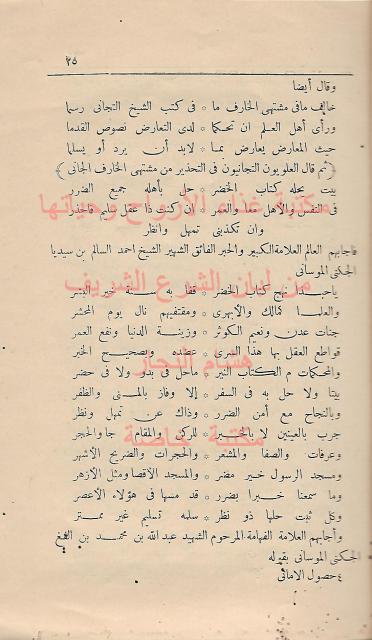 ٢٥
وقال أيضا
خالف مافى مشتهى الخارف ما * فى كتب الشيخ التجانى رسما
ورأى أهل العلم ان تحكما * لدى التعارض نصوص القدما
حيث المعارض يعارض بما * لابد أن يرد أو يسلما
(ثم قال العلويون التجانيون فى التحذير من مشتهى الخارف الجانى)
بيت بحله كتاب الخضر * حل بأهله جميع الضرر
فى النفس والأهل معا والعمر * ان كنت ذا عقل سليم فاحذر
وان تكذبنى تمهل وانظر
مكتبة غذاء الأرواح ورحيانها
فاجابهم العالم العلامة الكبير والحبر الفائق الشهير الشيخ احمد السالم بن سيديا
الحكنى الموسانى
من لبان الشرع الشريف
ياحبذا نهج كتاب الخضر * قفا به خير البشر
والعلما كمالك والأبهرى * ومقتفيهم نال يوم المحشر
جنات عدن ونعيم الكوثر * وزينة الدنيا ونفع العمر
قواطع العقل بها هذا السرى * عضده وبصحيح الخبر
هشام النجار
والمحكمات م الكتاب النير * ماحل فى بدو ولا فى حضر
بيتا ولا حل به فى السفر * إلا وفاز بالمنى والظفر
وبالنجاح مع أمن الضرر * وذاك عن تمهل ونظر
جرب بالعينين لا بالخبر * للركن والمقام جا والحجر
مكتبة خاصة
وعرفات والصفا والمشعر * والحجرات والضريح الأشهر
ومسجد الرسول خير مضر * والمسجد الاقصا ومثل الازهر
وما سمعنا خبرا بضرر * قد مسها فى هؤلاء الأعصر
وكل ثبت حلها ذو نظر * سلمه تسليم غير ممتر
وأجابهم العلامة الفهامة المرحوم الشهيد عبد الله بن محمد بن
الحكنى الموسانى بقوله
٤ حصول الامانى